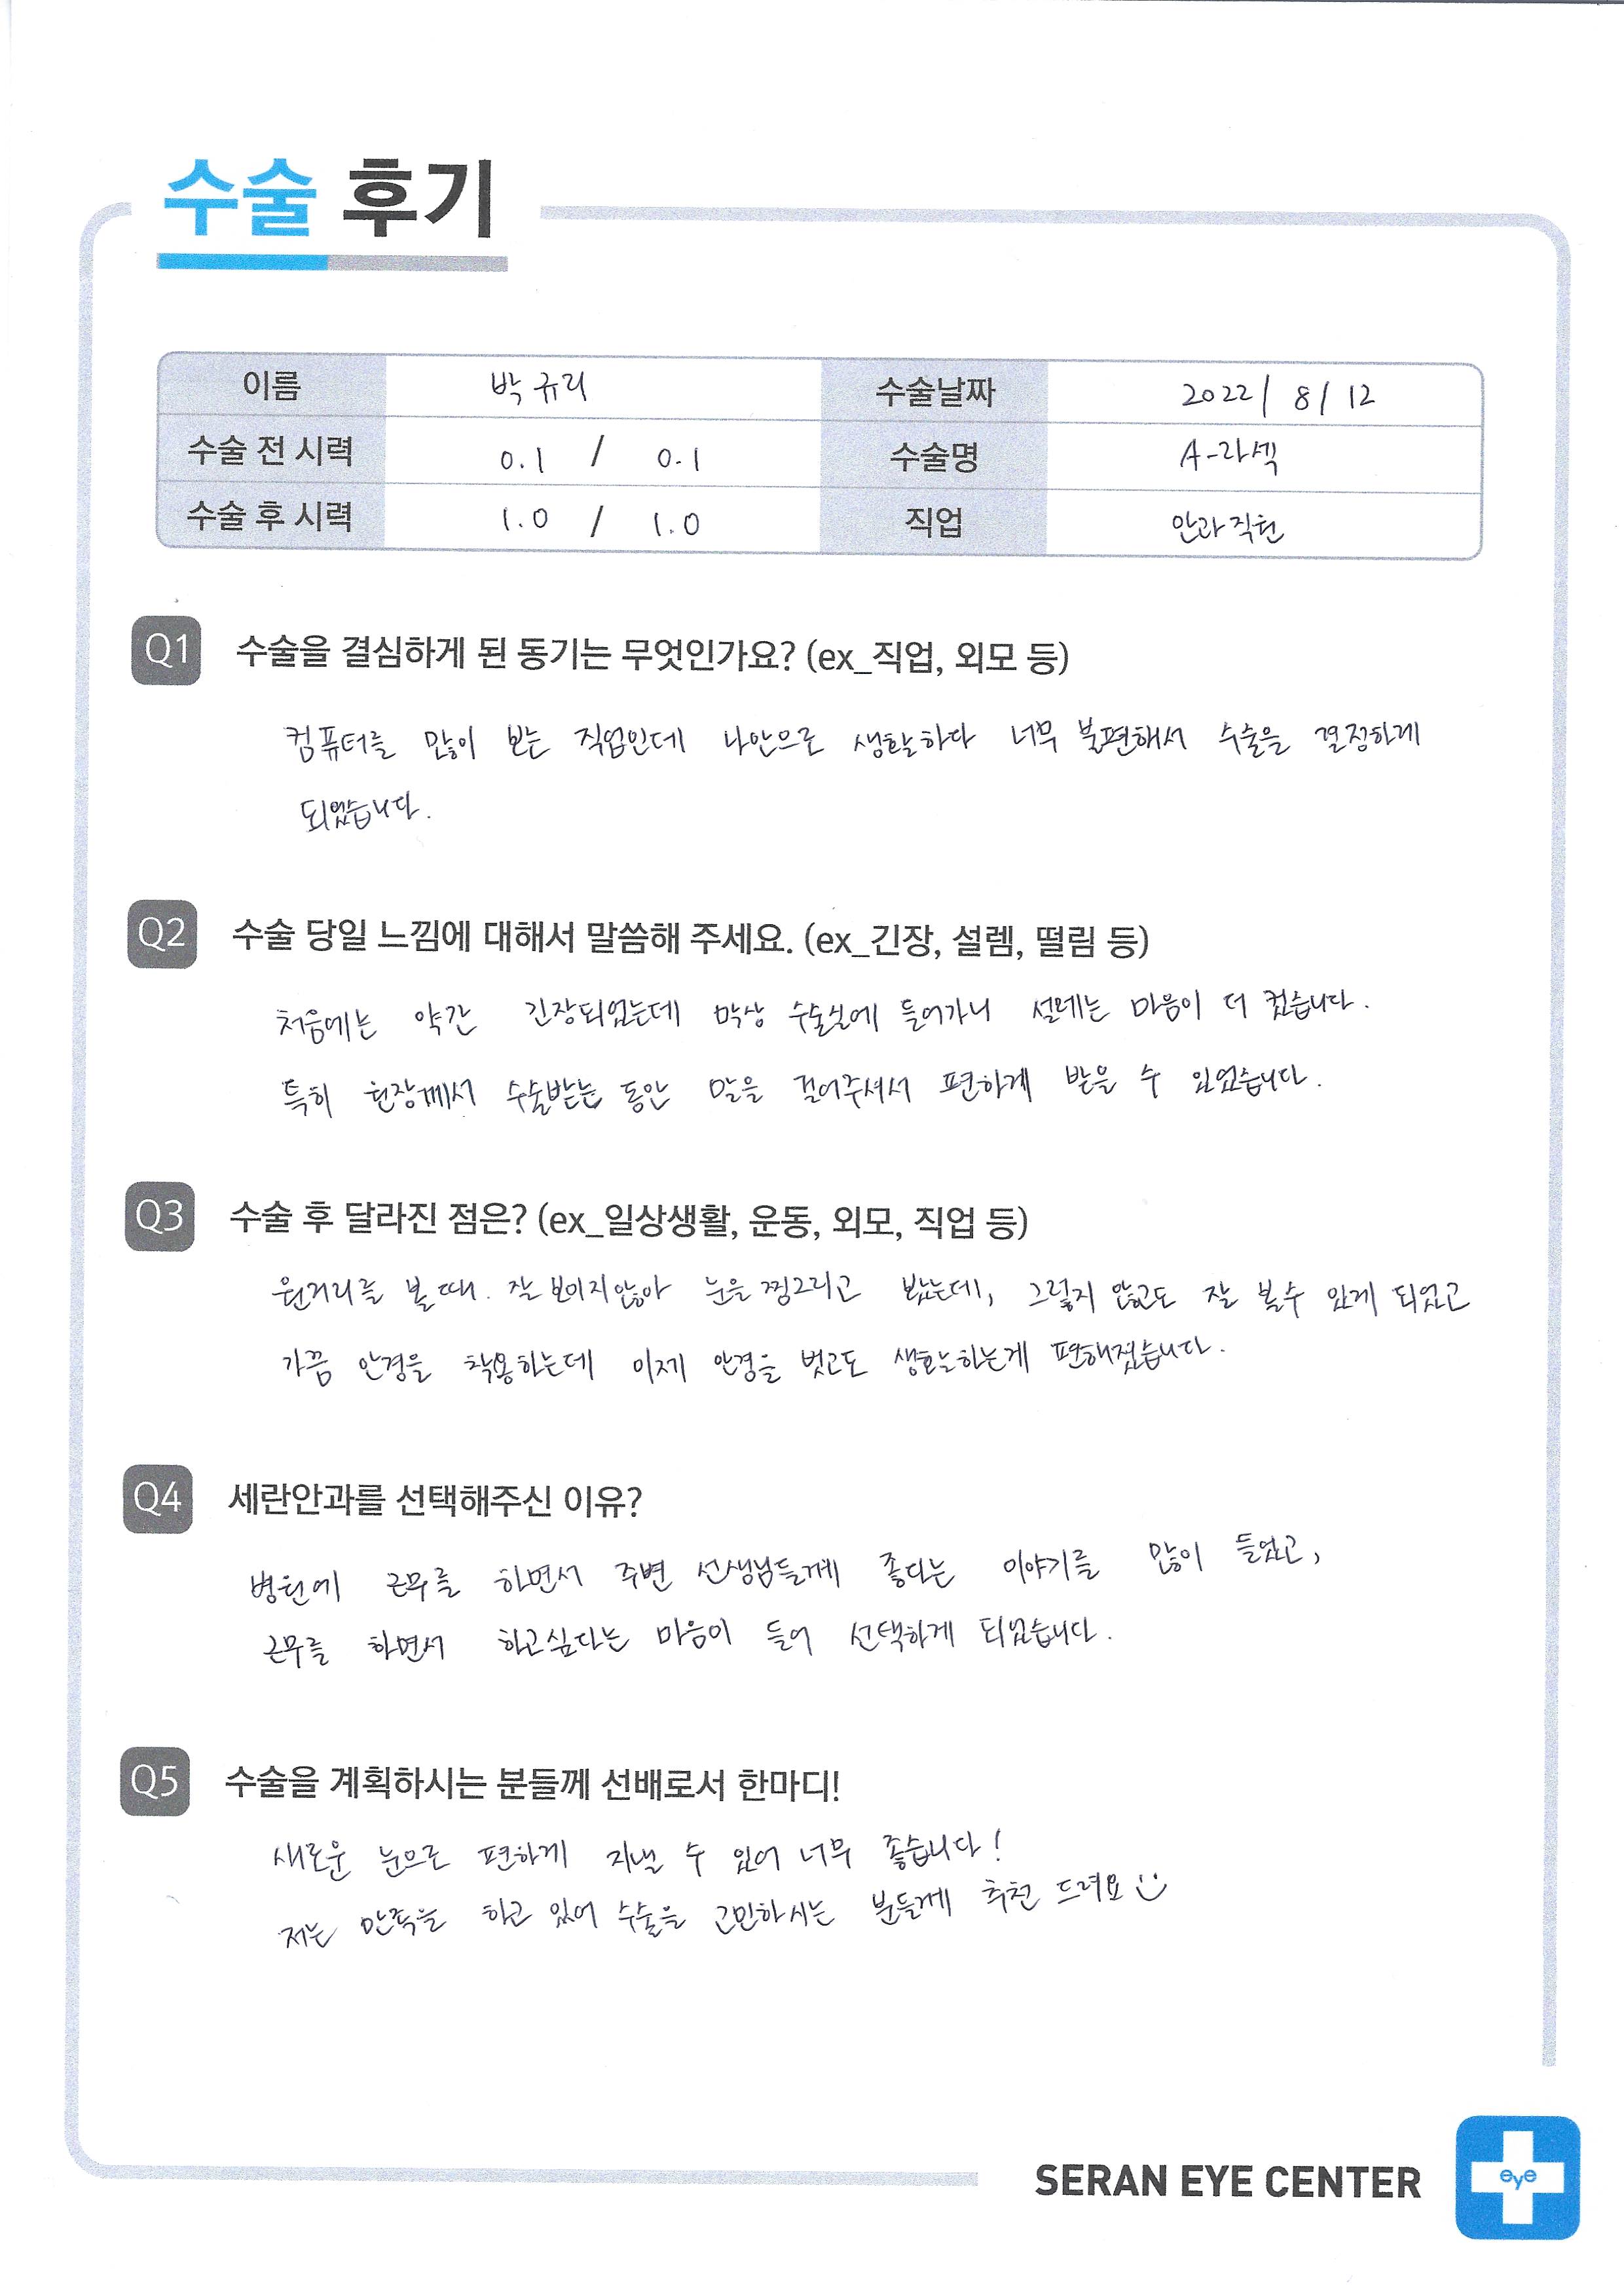 수술 후기
이름 박규리 수술날짜 2022/ 8/ 12
수술 전 시력 0.1 / 0.1 수술명 A-라섹
수술 후 시력 1.0 / 1.0 직업 안과직원
Q1 수술을 결심하게 된 동기는 무엇인가요? (ex_직업, 외모 등)
컴퓨터를 많이 보는 직업인데 나안으로 생활하다 너무 불편해서 수술을 결정하게
되었습니다.
Q2 수술 당일 느낌에 대해서 말씀해 주세요. (ex_긴장, 설렘, 떨림 등)
처음에는 약간 긴장되었는데 막상 수술실에 들어가니 설레는 마음이 더 컸습니다.
특히 원장께서 수술받는 동안 말을 걸어주셔서 편하게 받을 수 있었습니다.
Q3 수술 후 달라진 점은? (ex_일상생활, 운동, 외모, 직업 등)
원거리를 볼 때. 잘 보이지않아 눈을 찡그리고 봤는데, 그렇지 않고도 잘 볼수 있게 되었고
가끔 안경을 착용하는데 이제 안경을 벗고도 생활하는게 편해졌습니다.
Q4 세란안과를 선택해주신 이유?
병원에 근무를 하면서 주변 선생님들께 좋다는 이야기를 많이 들었고,
근무를 하면서 하고싶다는 마음이 들어 선택하게 되었습니다.
Q5 수술을 계획하시는 분들께 선배로서 한마디!
새로운 눈으로 편하게 지낼 수 있어 너무 좋습니다!
저는 만족을 하고 있어 수술을 고민하시는 분들께 추천 드려요
SERAN EYE CENTER
eye